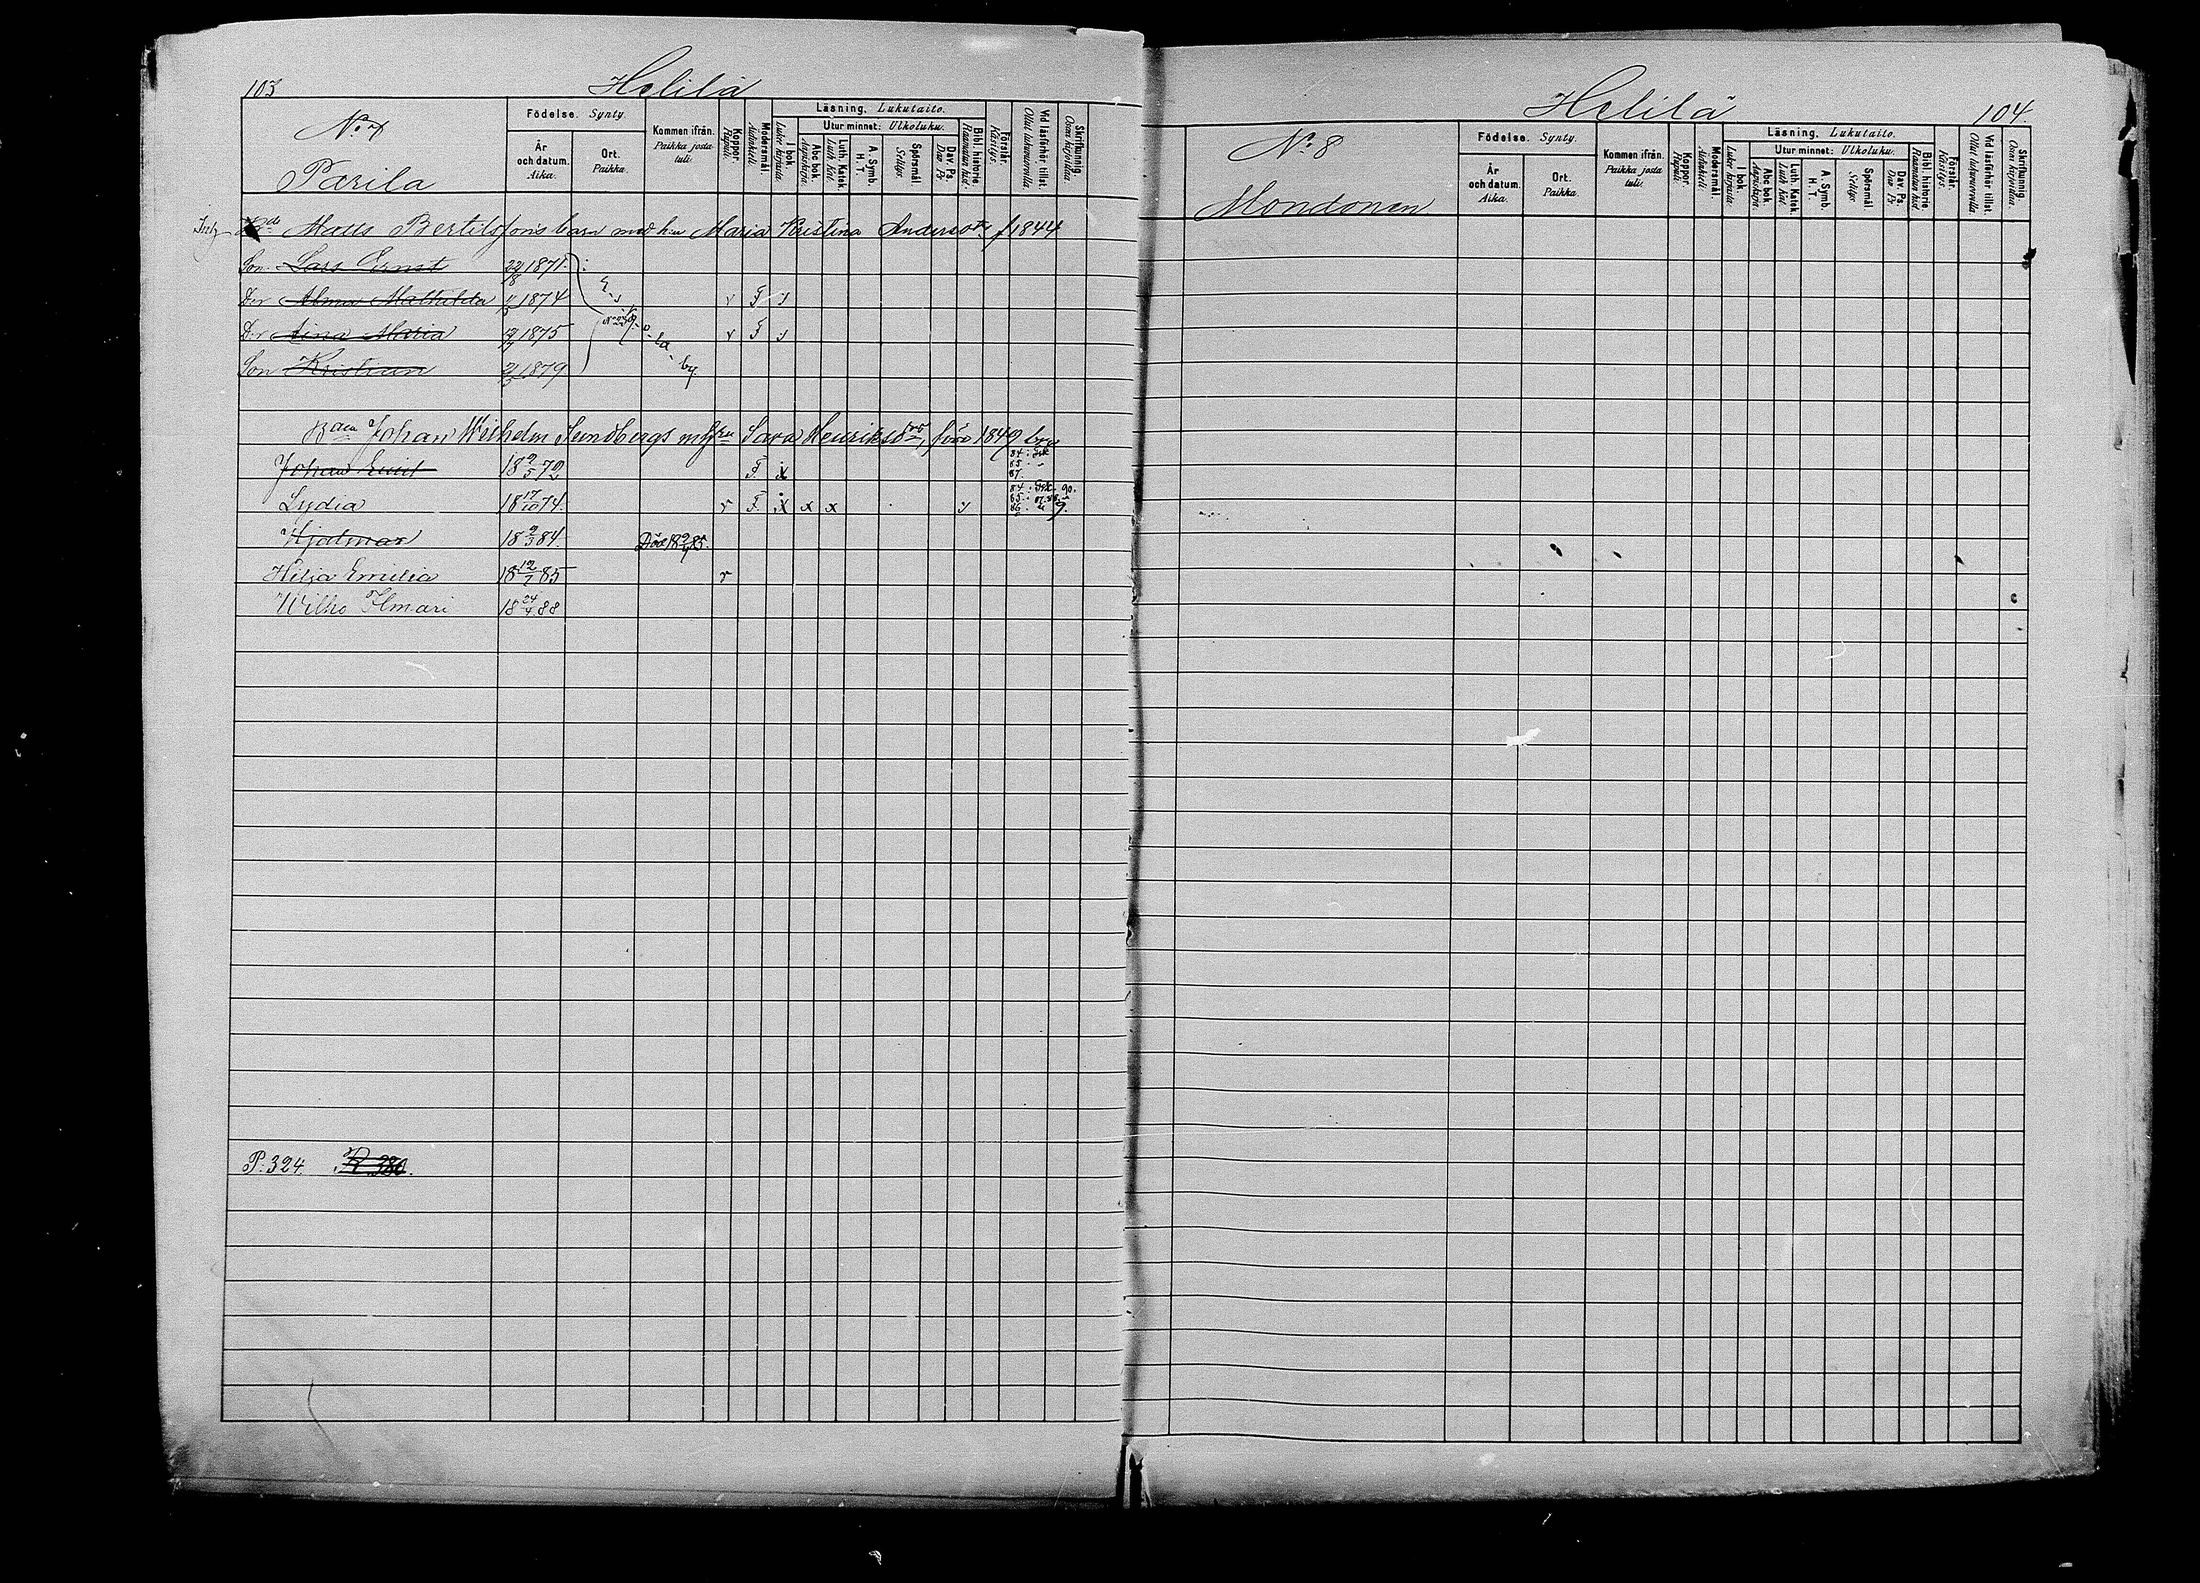 103
Helilä
No 7
Parila
Födelse. Synty.
År och datum. Aika.
Ort. Paikka.
Kommen ifrån. Paikka josta tuli.
Koppor. Rupuli.
Modersmål. Äidinkieli.
Läsning. Lukutaito.
I bok. Lukee kirjasta.
Utur minnet: Ulkoluku.
Abc bok. Aapiskirja.
Luth. Katek. Luth. Kat.
A. Symb. H. T.
Spörsmål. Selitys.
Dav. Ps. Dav. Ps.
Bibl. historie. Raamatun hist.
Förstår. Käsitys.
Vid läsförhör tillst. Ollut lukuvuorolla.
Skrifkunnig. Osaa kirjoittaa.
Matts Bertilssons barn med h:u Maria Kristina Andersdtr f 1844
Son Lars Ernst 22/8 1871
Dr Alma Mathilda 1874 v F
Dr Aina Maria 1875 v F
Son Kristian 1879
by.
Barn Johan Wilhelm Sundbergs m h:u Sara Henriksdtr, född 1849
Johan Emil 18 9/5 72 F x 84. 85. 87.
Lydia 18 17/10 74. v F x x x 84. 85. 86. 90.
Hjalmar 18 9/3 84. Död
Hilja Emilia 18 12/7 85 v
Wilho Ilmari 18 24/4 88
P. 324. R. 380.
Helilä
104
No 8
Mondonen
Födelse. Synty.
År och datum. Aika.
Ort. Paikka.
Kommen ifrån. Paikka josta tuli.
Koppor. Rupuli.
Modersmål. Äidinkieli.
Läsning. Lukutaito.
I bok. Lukee kirjasta.
Utur minnet: Ulkoluku.
Abc bok. Aapiskirja.
Luth. Katek. Luth. Kat.
A. Symb. H. T.
Spörsmål. Selitys.
Dav. Ps. Dav. Ps.
Bibl. historie. Raamatun hist.
Förstår. Käsitys.
Vid läsförhör tillst. Ollut lukuvuorolla.
Skrifkunnig. Osaa kirjoittaa.